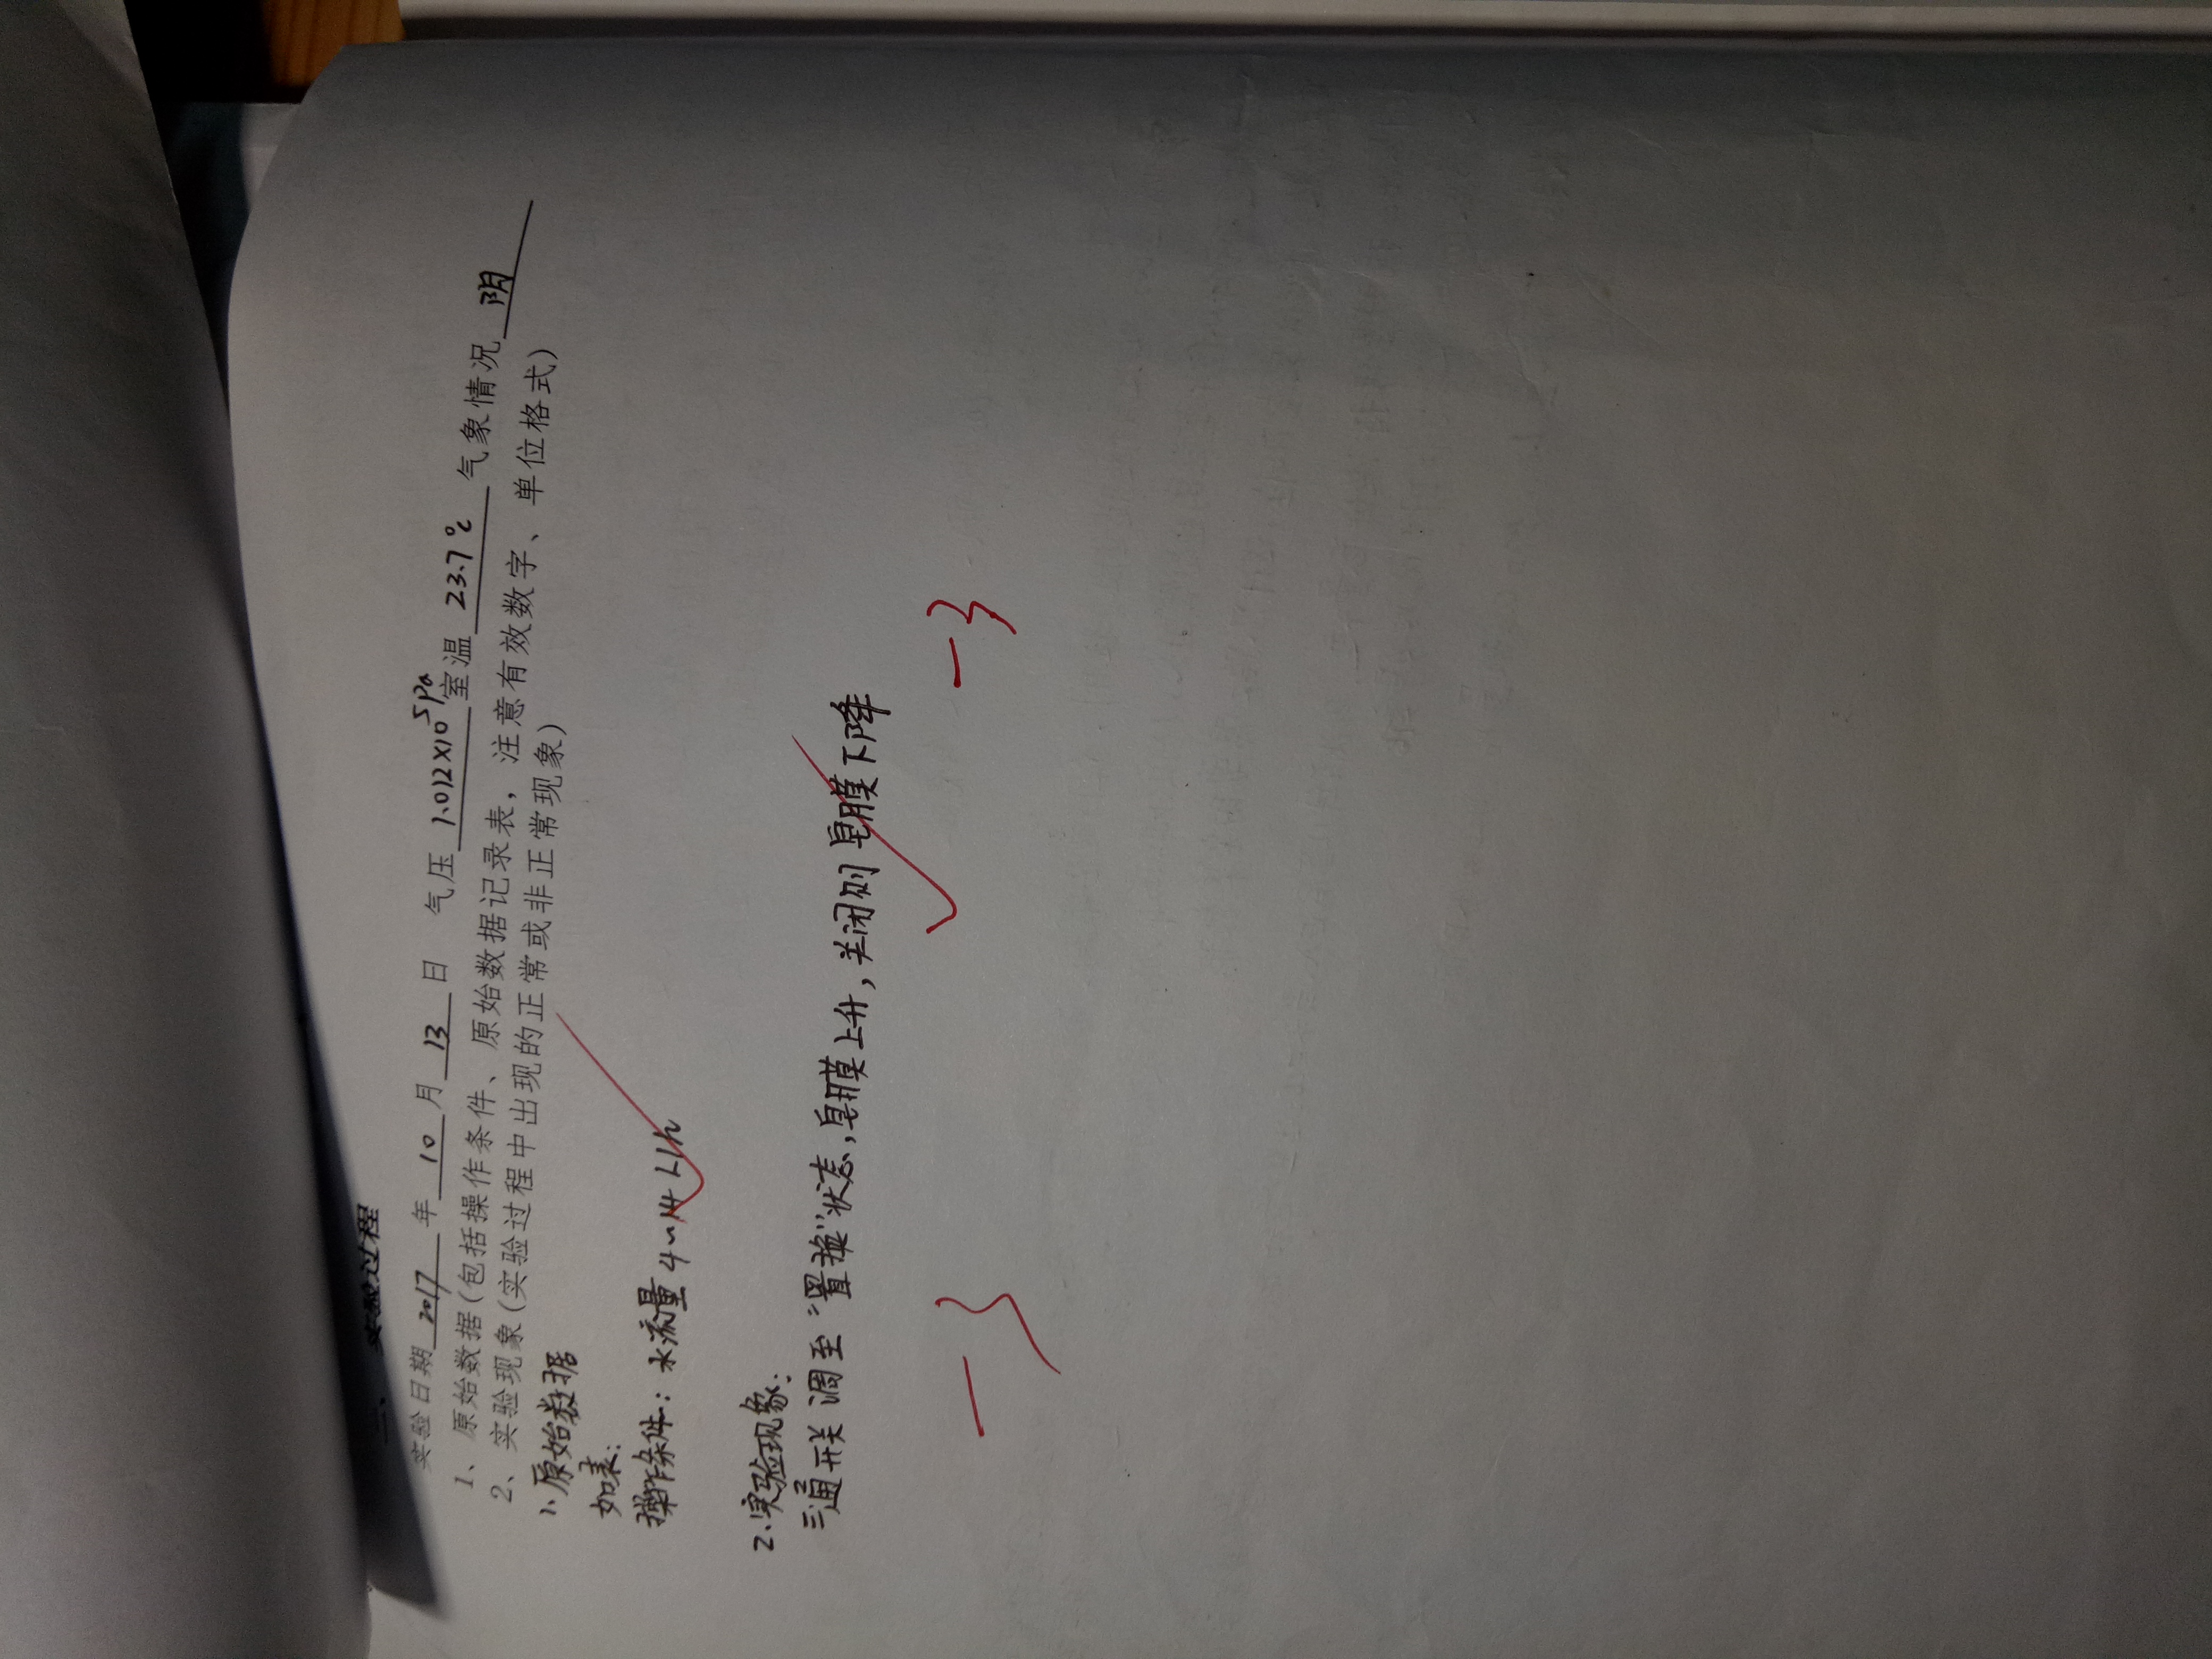 二、实验过程
实验日期 2017 年 10 月 13 日 气压 1.012×10⁵Pa 室温 23.7℃ 气象情况 阴
1、原始数据(包括操作条件、原始数据记录表，注意有效数字、单位格式)
2、实验现象(实验过程中出现的正常或非正常现象)
1、原始数据
如表:
操作条件: 水流量 4~14 L/h
2.实验现象:
三通开关调至"置换"状态,皂膜上升,关闭则皂膜下降
-3 -3